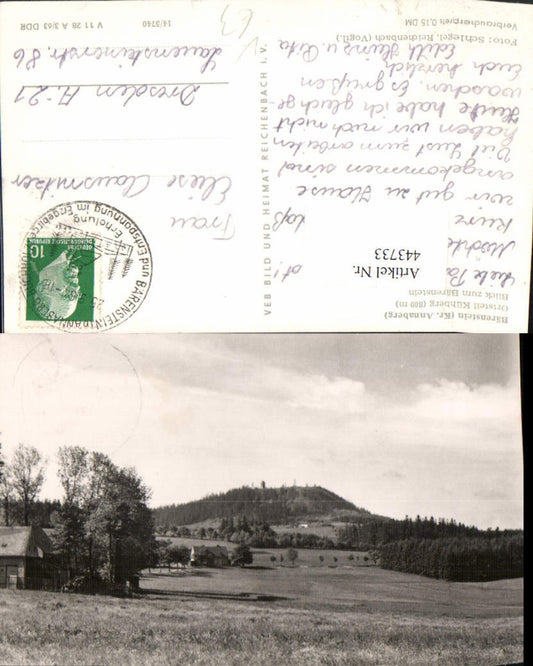 Bärenstein (Kr. Annaberg)
Ortsteil Kühberg (800 m)
Blick zum Bärenstein
Liebe
kurz
daß
wir gut zu Hause
angekommen sind
Viel Lust zum arbeiten
haben wir noch nicht
Heute habe ich gleich ge-
waschen. Es grüßen
Euch herzlich
Edith Heinz u. Rita
Foto: Schlegel, Reichenbach (Vogtl.)
Verbraucherpreis 0,15 DM
VEB BILD UND HEIMAT REICHENBACH I. V.
Artikel Nr.
443733
DEUTSCHE
DEMOKRATISCHE REPUBLIK
10
BÄRENSTEIN
Erholung und Entspannung im Erzgebirge
Frau
Eliese Clausnitzer
Dresden A-21
Lauensteinerstr. 86
14/5740
V 11 28 A 3/63 DDR
63